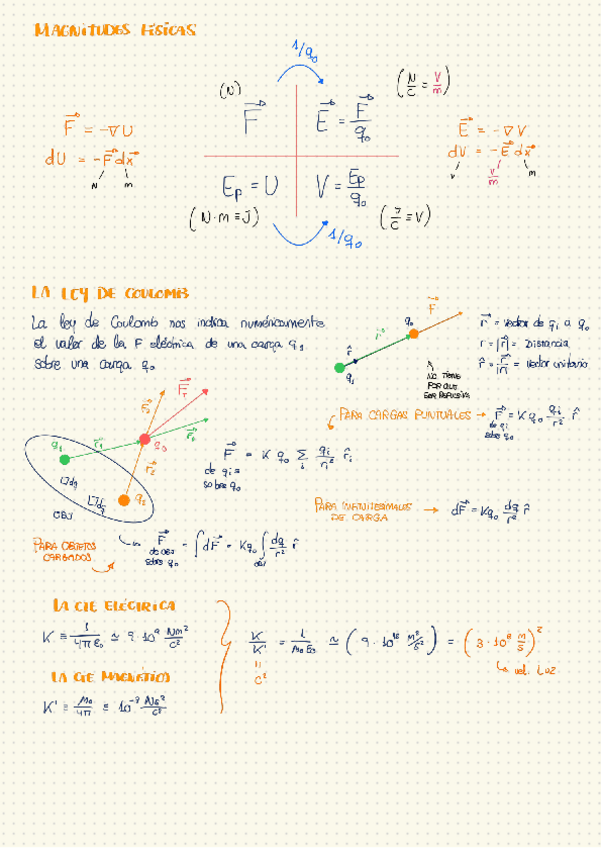 MAGNITUDES FÍSICAS
1/q₀
(N)
(N/C = V/m)
F⃗
E⃗ = F⃗/q₀
F⃗ = -∇U
dU = -F⃗ dx⃗
N m
E⃗ = -∇V
dV = -E⃗ dx⃗
V V/m m
Ep = U
V = Ep/q₀
(N·m ≡ J)
(J/C = V)
1/q₀
LA LEY DE COULOMB
La ley de Coulomb nos indica numéricamente
el valor de la F eléctrica de una carga q₁
sobre una carga q₀
F⃗
q₀
r⃗
r̂
q₁
r⃗ = vector de q₁ a q₀
r = |r⃗| = Distancia
r̂ = r⃗/|r⃗| = vector unitario
NO TIENE
POR QUE
SER REPULSIVA
PARA CARGAS PUNTUALES → F⃗ = K q₀ q₁/r² r̂
de q₁
sobre q₀
F⃗ = K q₀ Σᵢ qᵢ/rᵢ² r̂ᵢ
de qᵢ s
sobre q₀
q₁
r⃗₁
q₀
r⃗₂
q₂
dq
dq
OBJ
PARA INFINITESIMALES
DE CARGA → dF⃗ = Kq₀ dq/r² r̂
PARA OBJETOS
CARGADOS
F⃗ = ∫dF⃗ = Kq₀ ∫obj dq/r² r̂
de obj
sobre q₀
LA CTE ELÉCTRICA
K ≡ 1/4πε₀ ≃ 9·10⁹ Nm²/C²
LA CTE MAGNÉTICA
K' ≡ μ₀/4π ≡ 10⁻⁷ Ns²/C²
K/K' = 1/μ₀ε₀ ≃ (9·10¹⁶ m²/s²) = (3·10⁸ m/s)²
=
c²
vel. LUZ